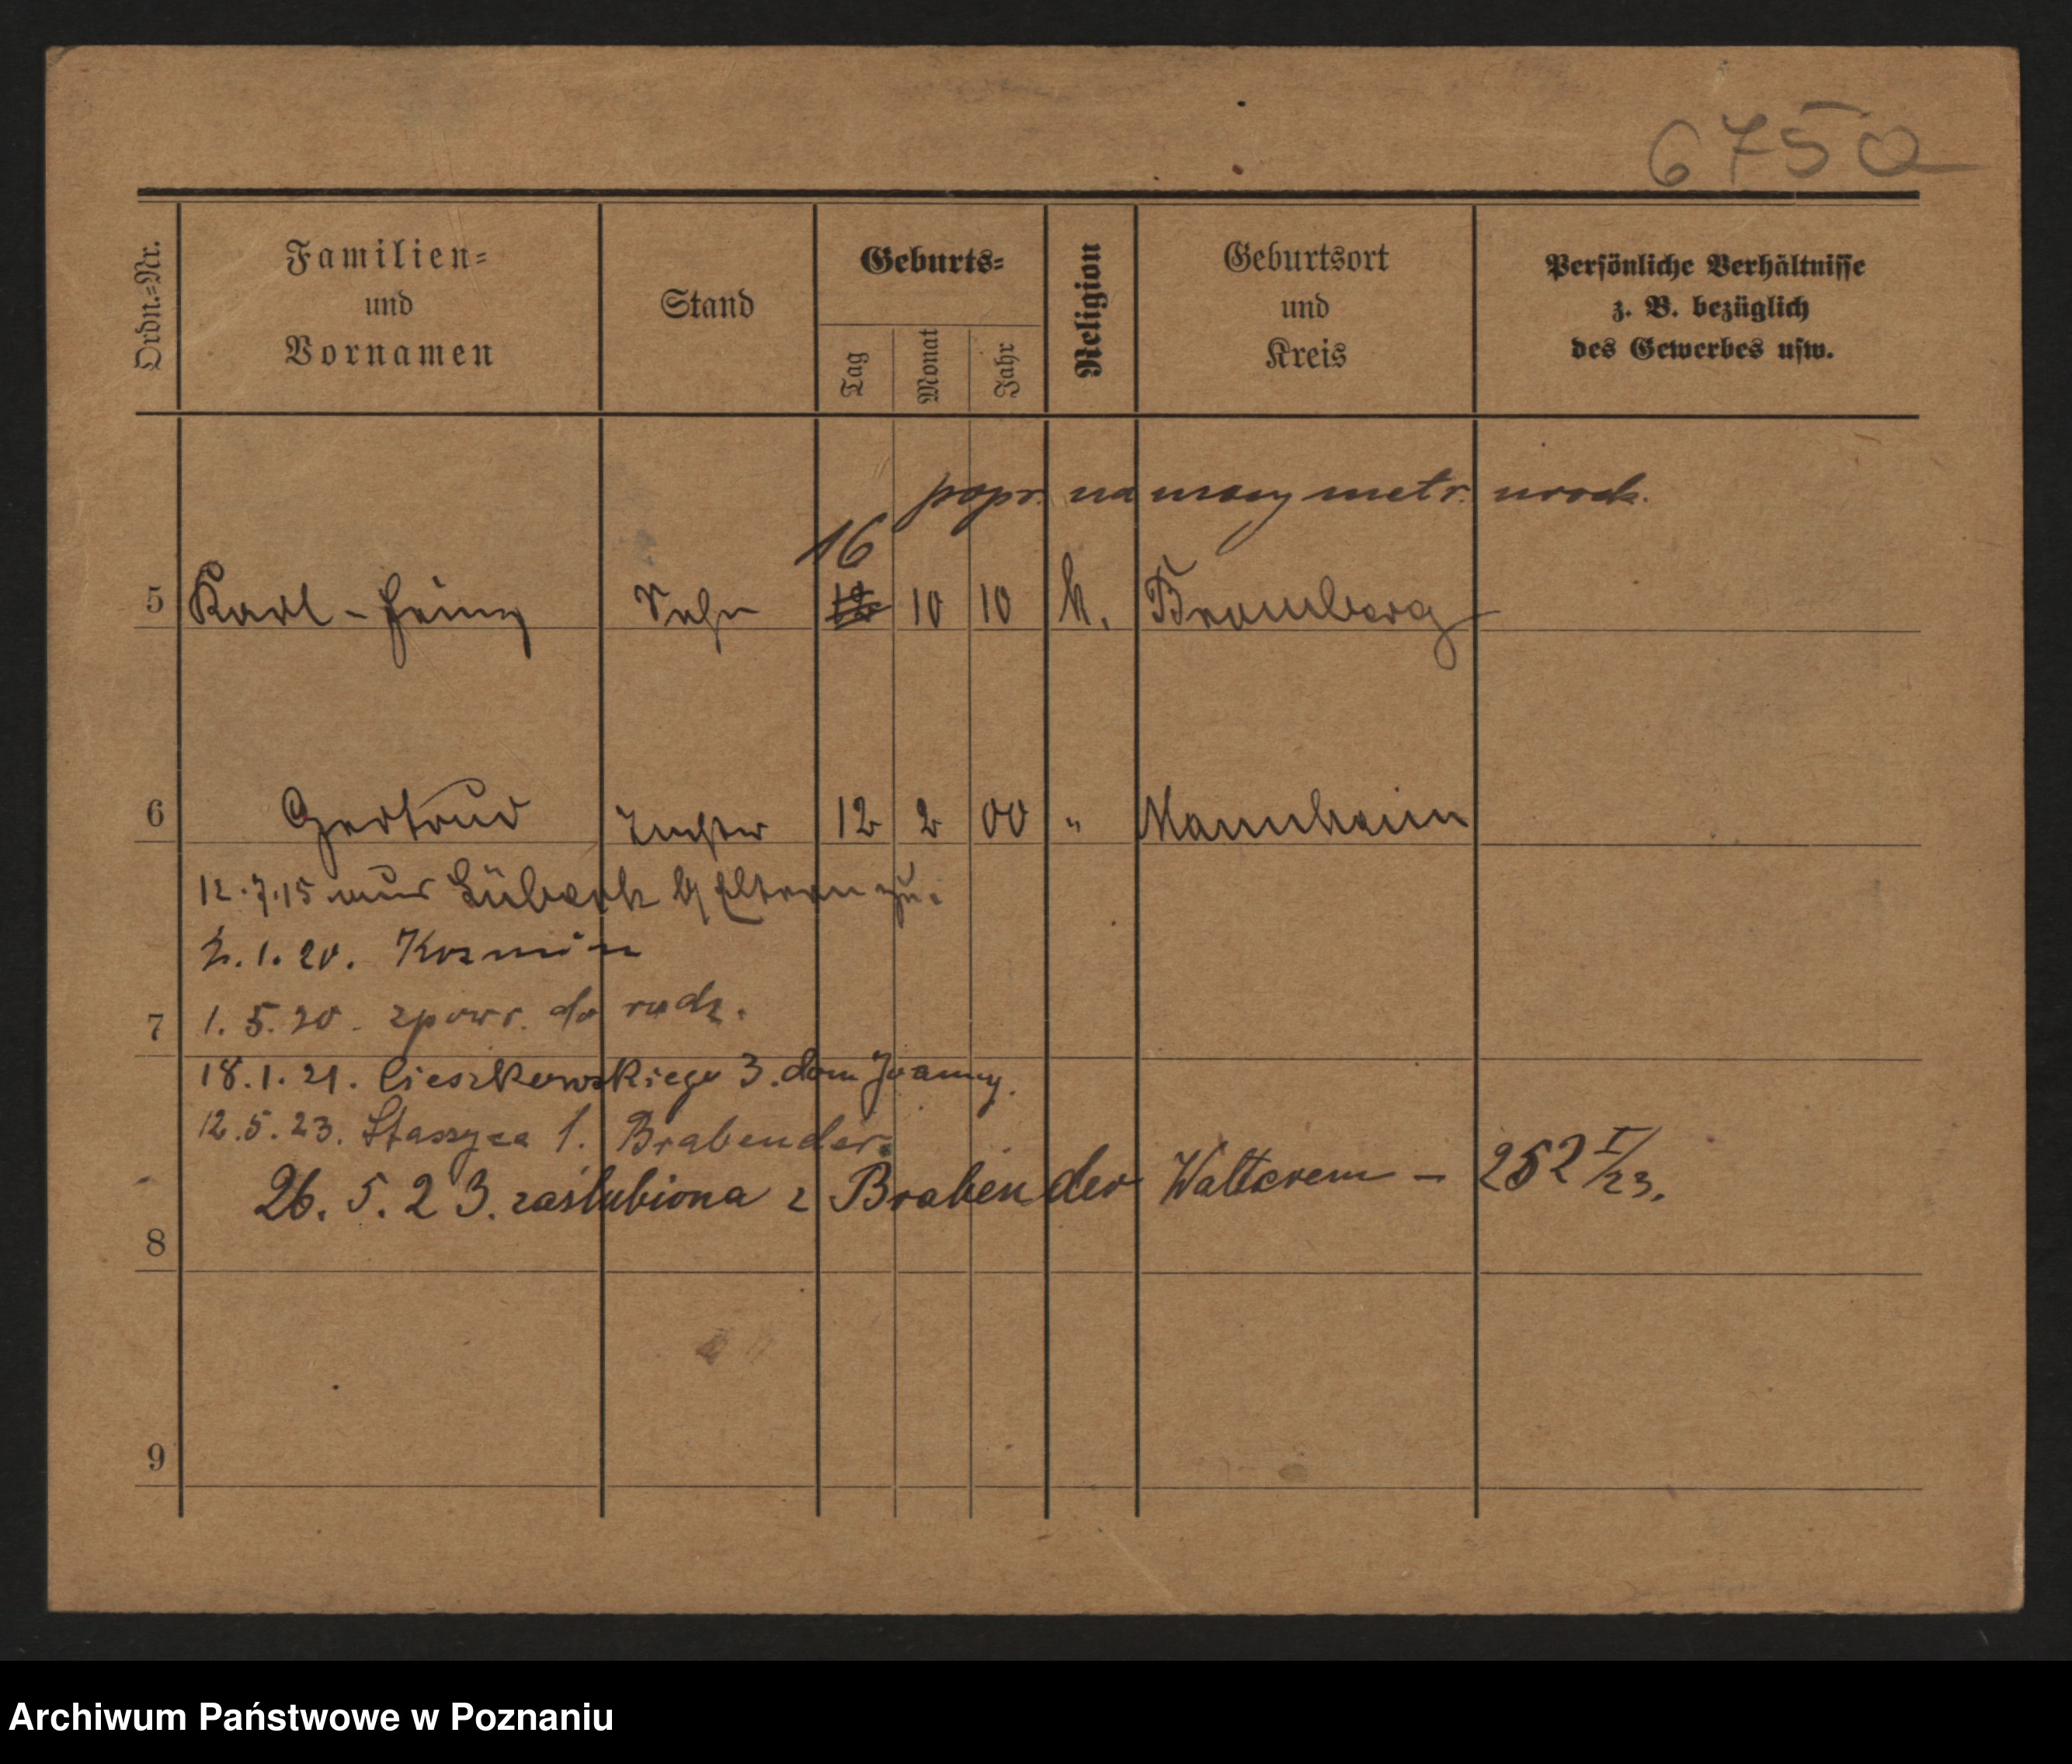 6750
Ordn.-Nr.
Familien-
und
Vornamen
Stand
Geburts-
Tag
Monat
Jahr
Religion
Geburtsort
und
Kreis
Persönliche Verhältnisse
z. B. bezüglich
des Gewerbes usw.
popr. na mocy metr. urodz.
16
5 Karl-Heinz Sohn 12 10 10 k. Bromberg
6 Gertrud Tochter 12 2 00 " Mannheim
12.7.15 aus Lübeck Eltern zu.
2.1.20. Kozmin
7
1.5.20. zpowr. do rodz.
18.1.21. Cieszkowskiego 3. dom Joanny.
12.5.23. Staszyca 1. Brabender.
26.5.23. zaślubiona z Brabender Walterem - 252 I/23.
8
9
Archiwum Państwowe w Poznaniu